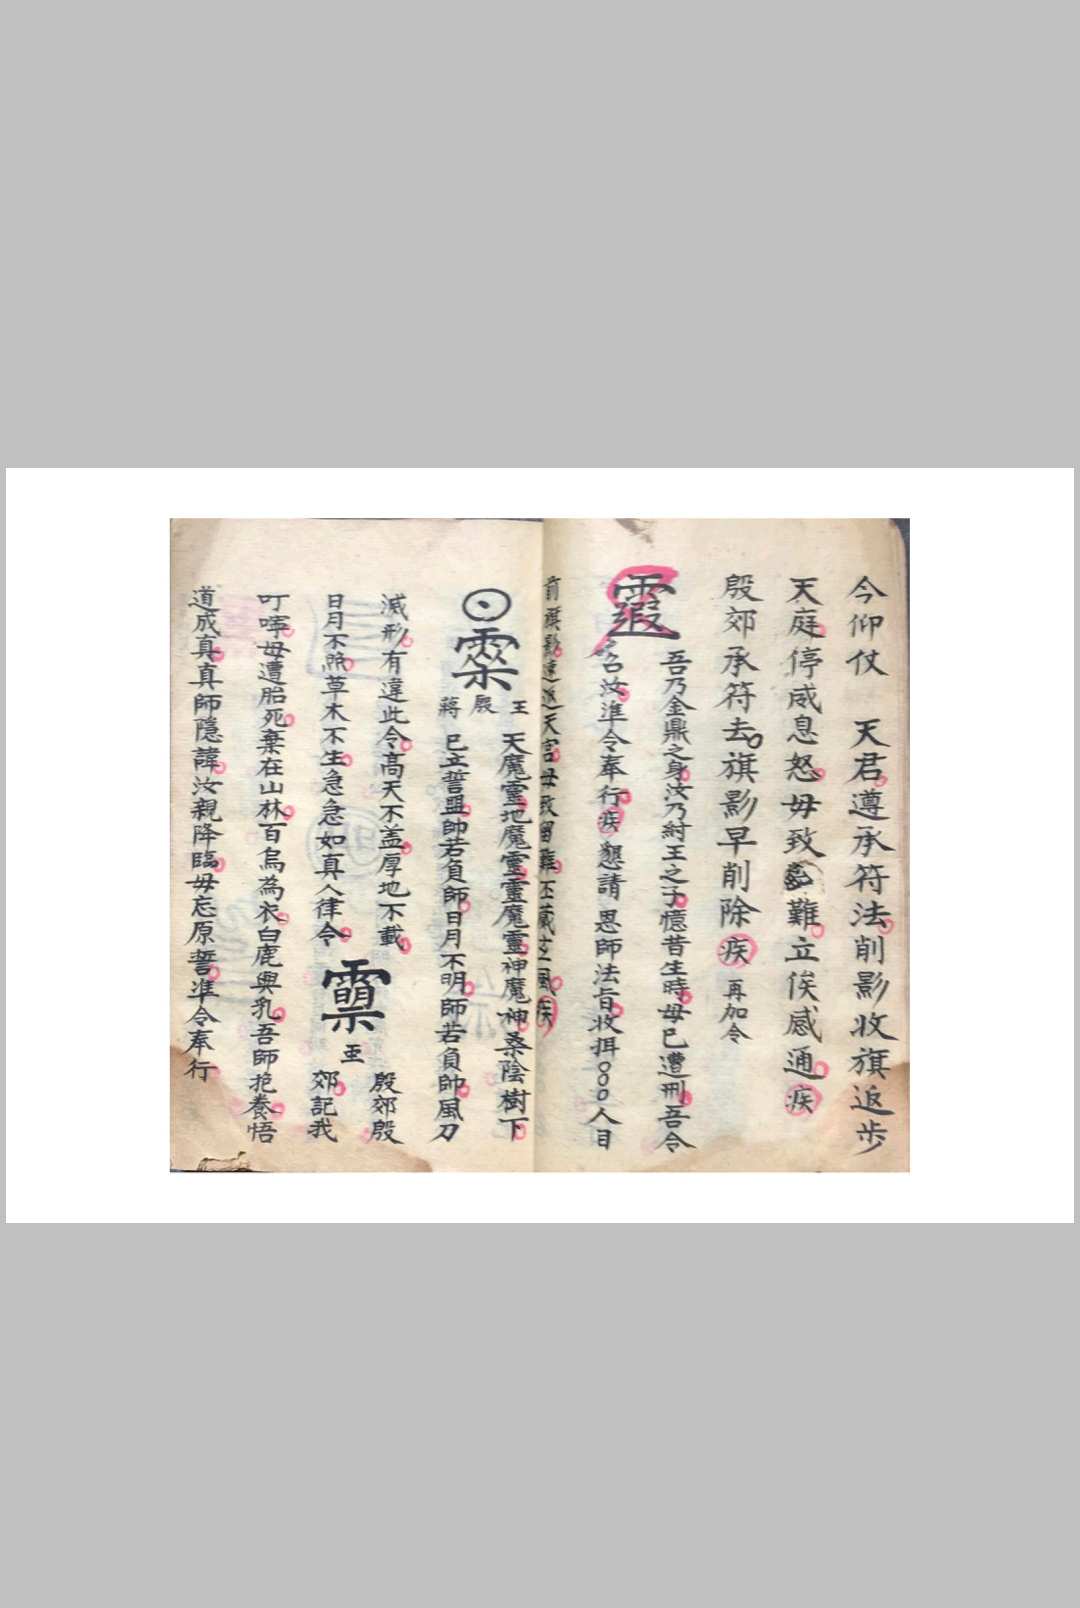 今仰仗　天君遵承符法削影收旗返步
天庭停威息怒毋致難立俟感通疾
殷郊承符去旗影早削除疾再加令
吾乃金鼎之身汝乃紂王之子憶昔生時母已遭刑吾令
召汝準令奉行疾懇請恩師法旨收拜人目
旗影速返天宮毋致留難
天魔靈地魔靈靈魔靈神魔神桑陰樹下
王
殷
蔣
已立誓盟帥若負師日月不明師若負帥風刀
滅形有違此令高天不盖厚地不載
殷郊殷
日月不照草木不生急急如真人律令
郊記我
叮嚀母遭胎死棄在山林百鳥為衣白鹿與乳吾師抱養悟
道成真真師隱諱汝親降臨毋忘原誓準令奉行